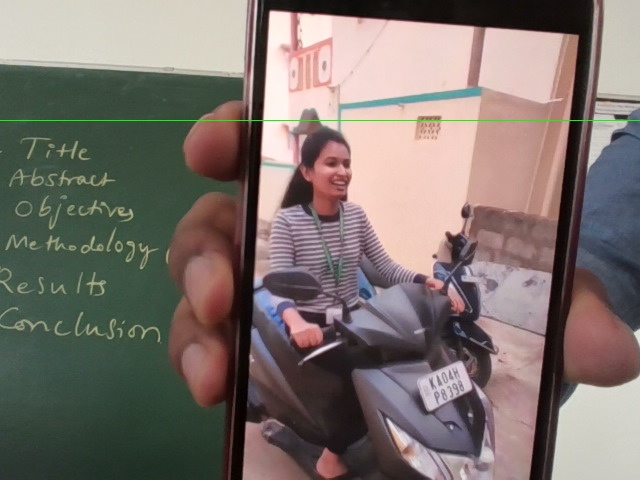 Title
Abstract
Objectives
Methodology
Results
Conclusion
KA04H
P8398